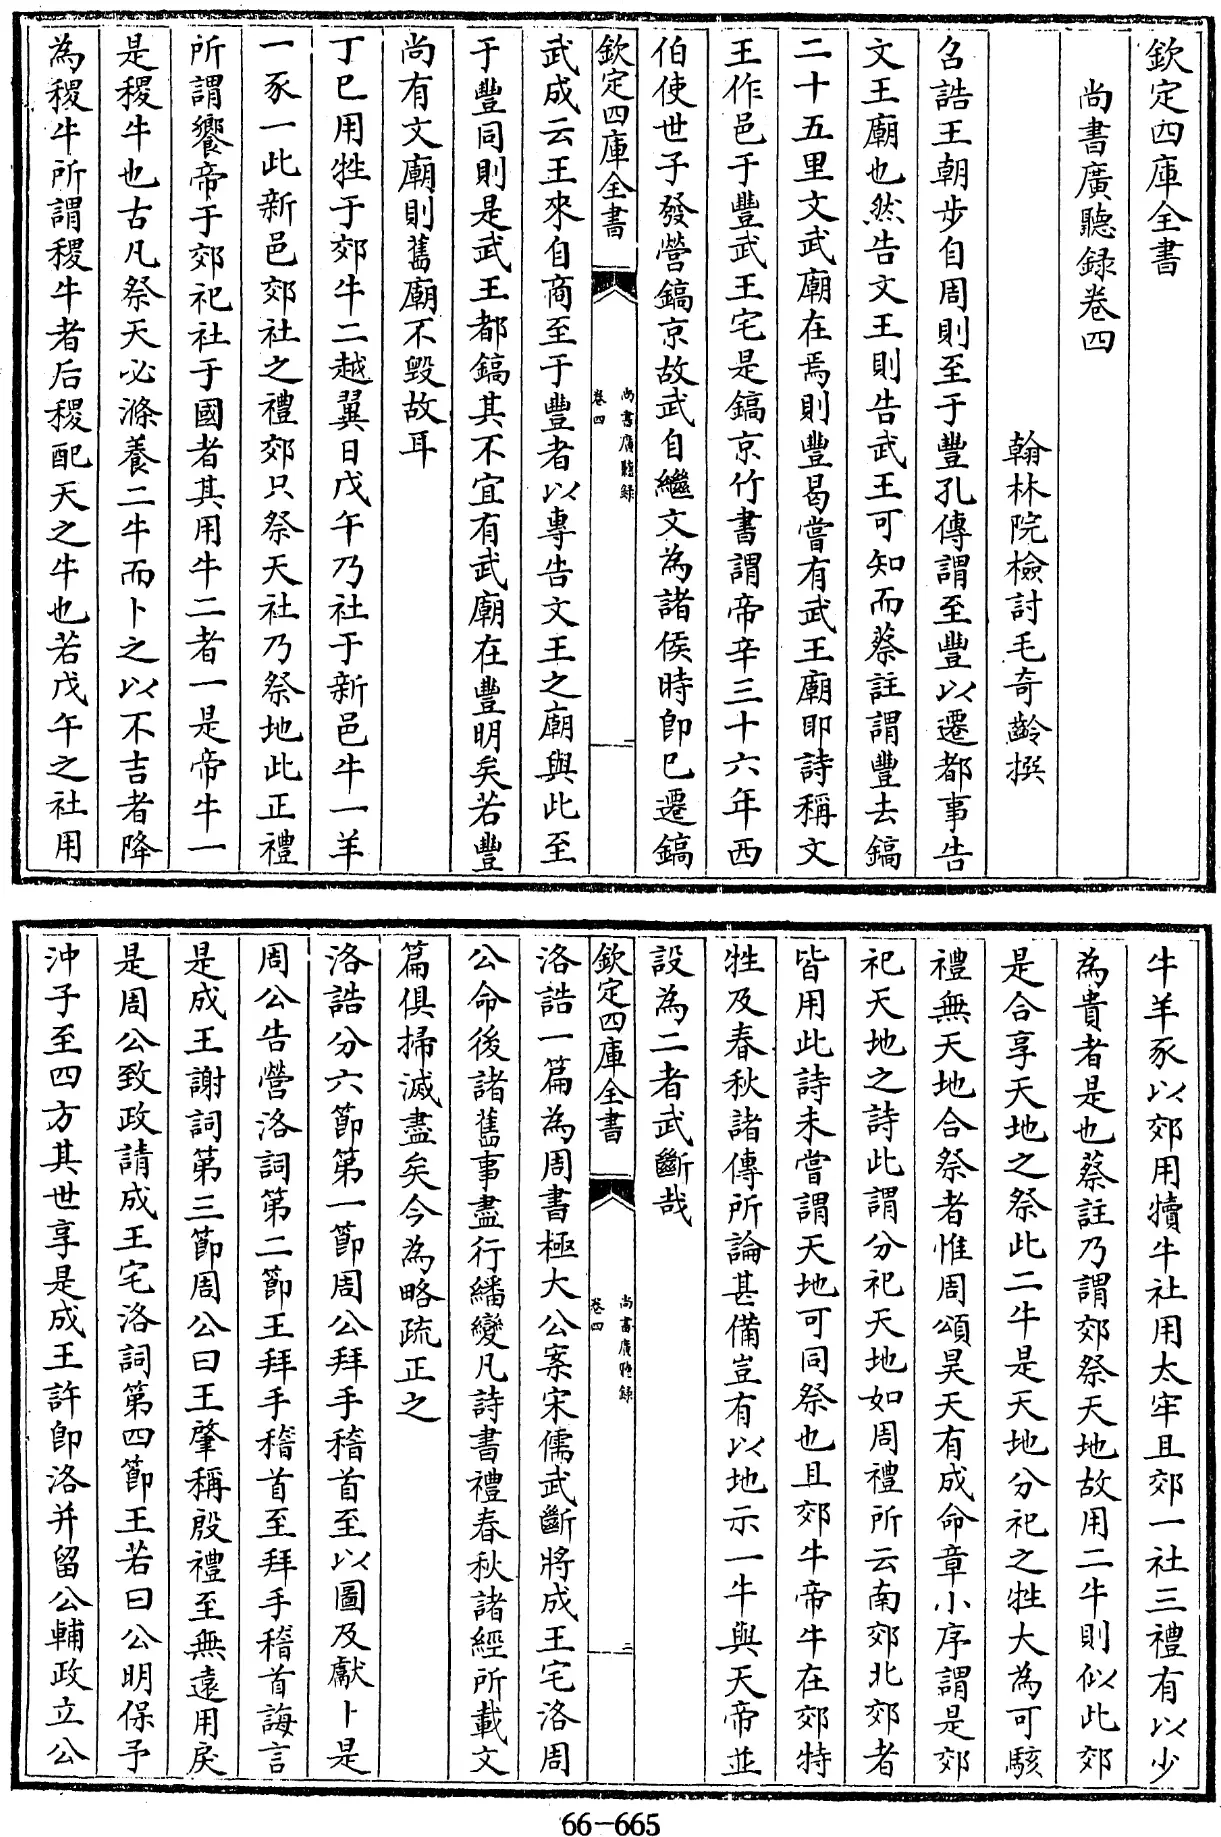 欽定四庫全書
尚書廣聽録卷四
翰林院檢討毛奇齡撰
召誥王朝步自周則至于豐孔傳謂至豐以遷都事告
文王廟也然告文王則告武王可知而蔡註謂豐去鎬
二十五里文武廟在焉則豐曷嘗有武王廟即詩稱文
王作邑于豐武王宅是鎬京竹書謂帝辛三十六年西
伯使世子發營鎬京故武自繼文為諸侯時即已遷鎬
欽定四庫全書
尚書廣聽録
卷四
二
武成云王來自商至于豐者以專告文王之廟與此至
于豐同則是武王都鎬其不宜有武廟在豐明矣若豐
尚有文廟則舊廟不毀故耳
丁巳用牲于郊牛二越翼日戊午乃社于新邑牛一羊
一豕一此新邑郊社之禮郊只祭天社乃祭地此正禮
所謂饗帝于郊祀社于國者其用牛二者一是帝牛一
是稷牛也古凡祭天必滌養二牛而卜之以不吉者降
為稷牛所謂稷牛者后稷配天之牛也若戊午之社用
牛羊豕以郊用犢牛社用太牢且郊一社三禮有以少
為貴者是也蔡註乃謂郊祭天地故用二牛則似此郊
是合享天地之祭此二牛是天地分祀之牲大為可駭
禮無天地合祭者惟周頌昊天有成命章小序謂是郊
祀天地之詩此謂分祀天地如周禮所云南郊北郊者
皆用此詩未嘗謂天地可同祭也且郊牛帝牛在郊特
牲及春秋諸傳所論甚備豈有以地示一牛與天帝並
設為二者武斷哉
欽定四庫全書
尚書廣聽録
卷四
三
洛誥一篇為周書極大公案宋儒武斷將成王宅洛周
公命後諸舊事盡行繙變凡詩書禮春秋諸經所載文
篇俱掃滅盡矣今為略疏正之
洛誥分六節第一節周公拜手稽首至以圖及獻卜是
周公告營洛詞第二節王拜手稽首至拜手稽首誨言
是成王謝詞第三節周公曰王肇稱殷禮至無遠用戾
是周公致政請成王宅洛詞第四節王若曰公明保予
沖子至四方其世享是成王許即洛并留公輔政立公
66-665